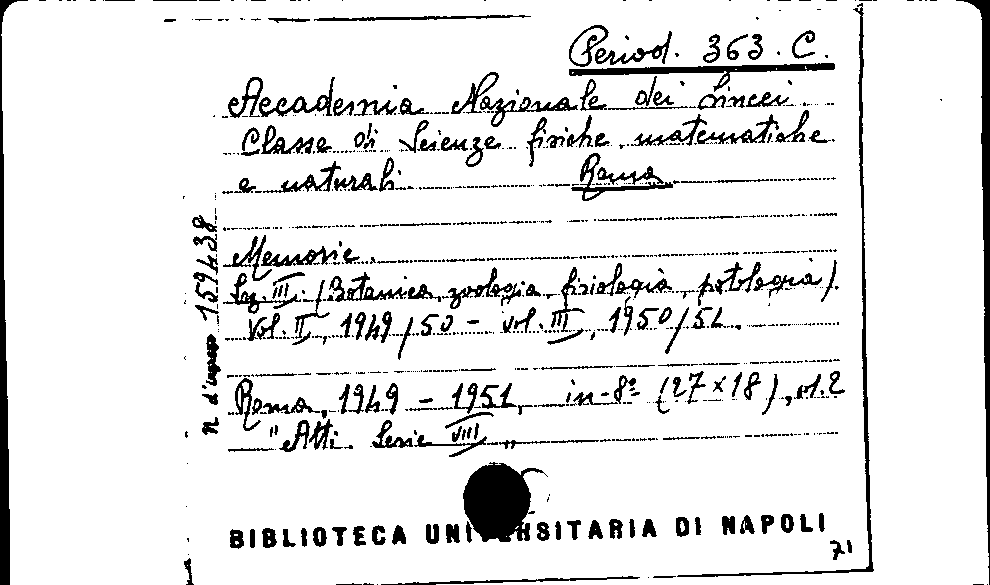 Period. 363. C.
Accademia Nazionale dei Lincei.
Classe di Scienze fisiche matematiche
e naturali. Roma
n. d'ingresso 159438
Memorie.
Sez. III. (Botanica, zoologia, fisiologia, patologia).
Vol. II, 1949/50 - vol. III, 1950/51.
Roma, 1949 - 1951, in-8º (27 x 18), vl. 2
"Atti. Serie VIII"
BIBLIOTECA UNIVERSITARIA DI NAPOLI
71